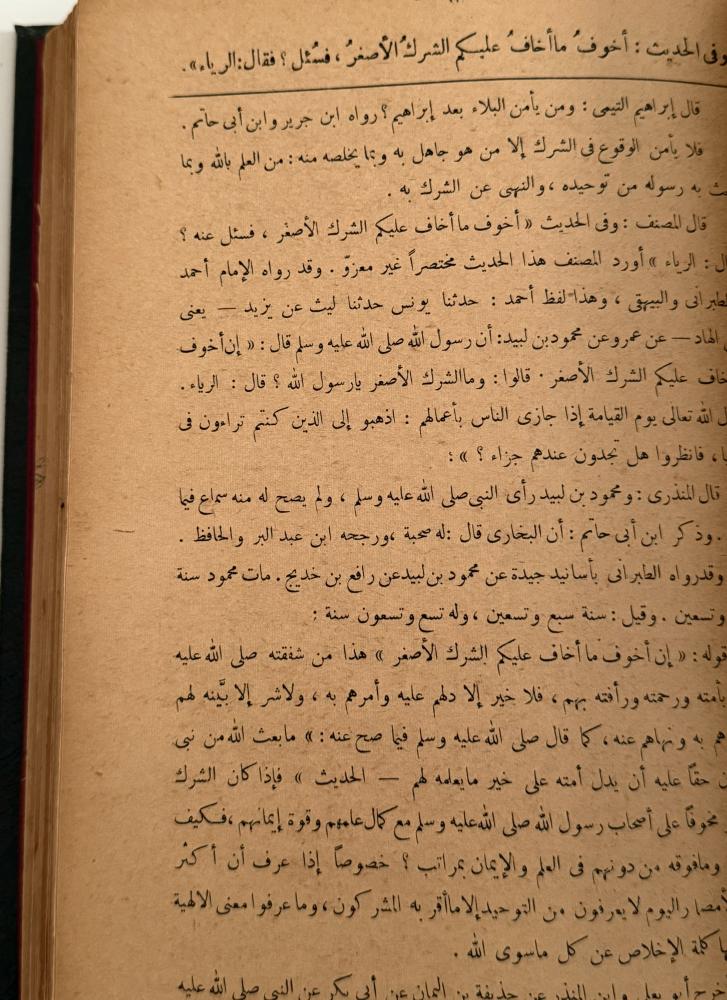 وفى الحديث : أخوفُ ما أخافُ عليكم الشركُ الأصغرُ ، فسُئل ؟ فقال : الرياء» .
قال إبراهيم التيمى : ومن يأمن البلاء بعد إبراهيم ؟ رواه ابن جرير وابن أبى حاتم .
فلا يأمن الوقوع فى الشرك إلا من هو جاهل به وبما يخلصه منه : من العلم بالله وبما
به رسوله من توحيده ، والنهى عن الشرك به .
قال المصنف : وفى الحديث « أخوف ما أخاف عليكم الشرك الأصغر ، فسئل عنه ؟
: الرياء » أورد المصنف هذا الحديث مختصراً غير معزوّ . وقد رواه الإمام أحمد
الطبرانى والبيهقى ، وهذا لفظ أحمد : حدثنا يونس حدثنا ليث عن يزيد — يعنى
الهاد — عن عمرو عن محمود بن لبيد : أن رسول الله صلى الله عليه وسلم قال : « إن أخوف
عليكم الشرك الأصغر . قالوا : وما الشرك الأصغر يارسول الله ؟ قال : الرياء .
الله تعالى يوم القيامة إذا جازى الناس بأعمالهم : اذهبو إلى الذين كنتم تراءون فى
، فانظروا هل تجدون عندهم جزاء ؟ » :
قال المنذرى : ومحمود بن لبيد رأى النبى صلى الله عليه وسلم ، ولم يصح له منه سماع فيما
. وذكر ابن أبى حاتم : أن البخارى قال : له صحبة ، ورجحه ابن عبد البر والحافظ .
وقد رواه الطبرانى بأسانيد جيدة عن محمود بن لبيد عن رافع بن خديج . مات محمود سنة
وتسعين . وقيل : سنة سبع وتسعين ، وله تسع وتسعون سنة :
قوله : « إن أخوف ما أخاف عليكم الشرك الأصغر » هذا من شفقته صلى الله عليه
بأمته ورحمته ورأفته بهم ، فلا خير إلا دلهم عليه وأمرهم به ، ولاشر إلا بيَّنه لهم
به ونهاهم عنه ، كما قال صلى الله عليه وسلم فيما صح عنه : » مابعث الله من نبى
حقاً عليه أن يدل أمته على خير مايعلمه لهم — الحديث » فإذا كان الشرك
مخوفاً على أصحاب رسول الله صلى الله عليه وسلم مع كمال علمهم وقوة إيمانهم ، فكيف
ومافوقه من دونهم فى العلم والإيمان بمراتب ؟ خصوصاً إذا عرف أن أكثر
اليوم لايعرفون من التوحيد إلا ما أقر به المشركون ، وما عرفوا معنى الالهية
كلمة الإخلاص عن كل ماسوى الله .
أبو يعلى وابن المنذر عن حذيفة بن اليمان عن أبى بكر عن النبى صلى الله عليه